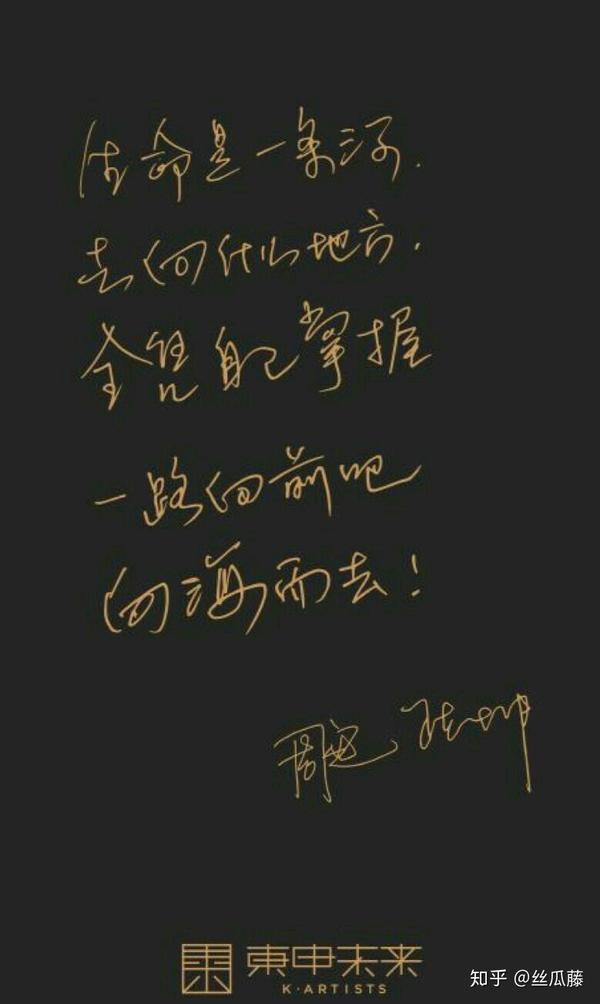 生命是一条河.
去向什么地方.
全凭自己掌握
一路向前吧
向海而去!
周迅 陈坤
東申未来
K·ARTISTS
知乎 @丝瓜藤